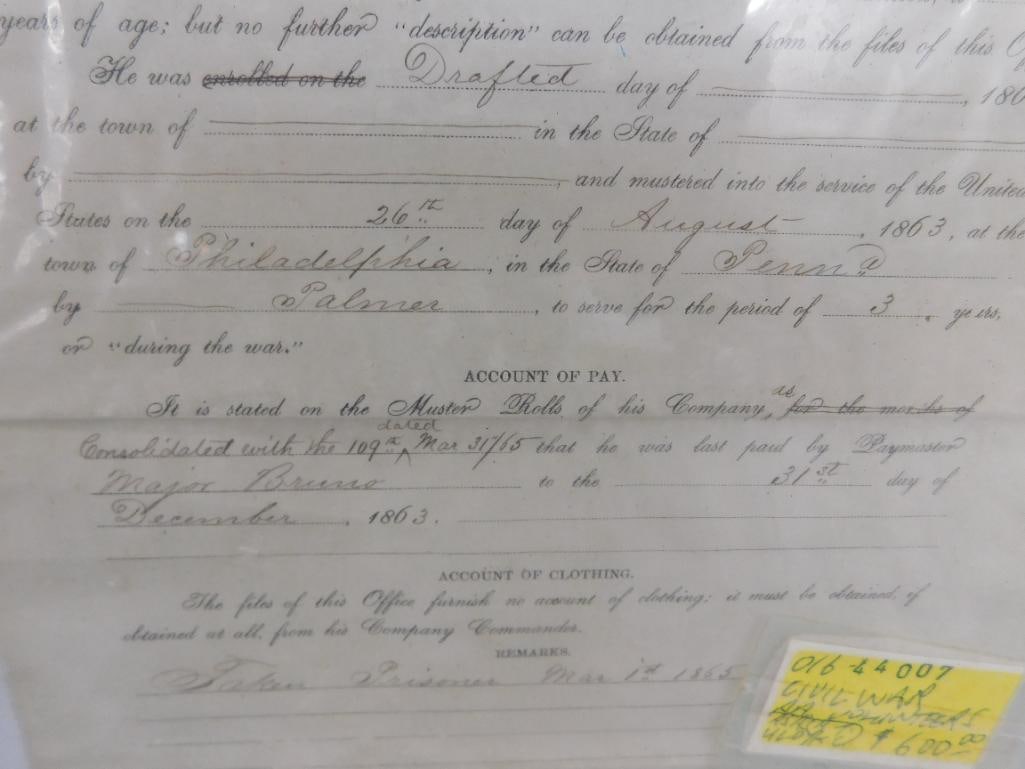 years of age; but no further "description" can be obtained from the files of this O
He was enrolled on the Drafted day of , 186
at the town of in the State of
by and mustered into the service of the United
States on the 26th day of August , 1863, at the
town of Philadelphia , in the State of Penna
by Palmer , to serve for the period of 3 years,
or "during the war."
ACCOUNT OF PAY.
as
It is stated on the Muster Rolls of his Company, for the months of
dated
Consolidated with the 109th Mar 31/65 that he was last paid by Paymaster
Major Bruno to the 31st day of
December , 1863.
ACCOUNT OF CLOTHING.
The files of this Office furnish no account of clothing; it must be obtained, if
obtained at all, from his Company Commander.
REMARKS.
Taken Prisoner Mar 1st 1865
016-44007
CIVIL WAR
VOLUNTEERS
$600.00